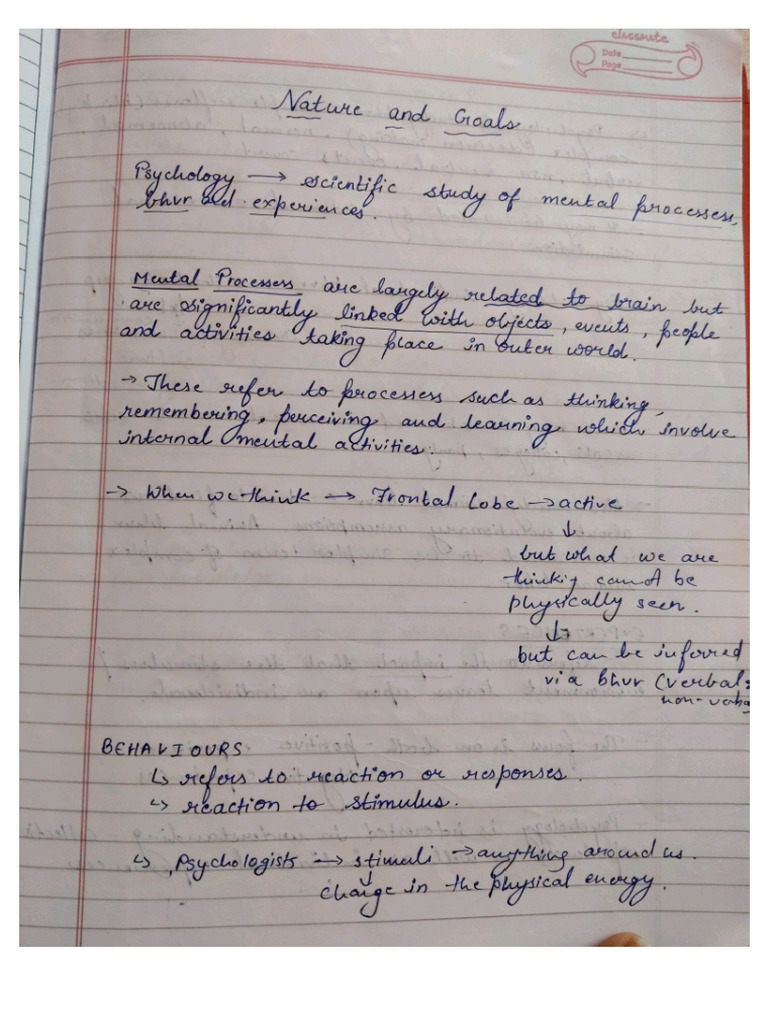 classmate
Date
Page
Nature and Goals
Psychology → scientific study of mental processess,
bhvr and experiences.
Mental Processess are largely related to brain but
are significantly linked with objects, events, people
and activities taking place in outer world.
→ These refer to processess such as thinking,
remembering, perceiving and learning which involve
internal mental activities.
→ When we think → Frontal Lobe → active
↓
but what we are
thinkig cannot be
physically seen.
↓
but can be inferred
via bhvr (verbal
non-verba
BEHAVIOURS
↳ refers to reaction or responses.
↳ reaction to stimulus.
↳ Psychologists → stimuli → anything around us.
↓
change in the physical energy.